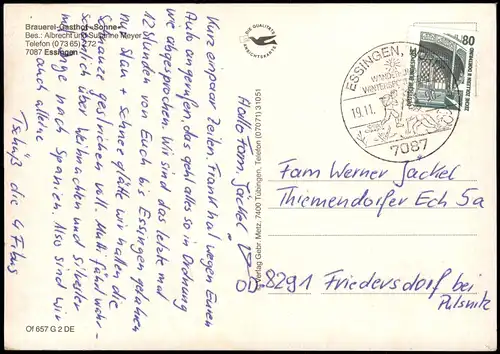 Brauerei-Gasthof »Sonne«
Bes.: Albrecht und Susanne Meyer
Telefon (0 73 65) 2 72
7087 Essingen
Hallo Fam. Jäckel
Kurz ein paar Zeilen. Frank hat wegen Euren
Auto angerufen, das geht alles so in Ordnung
wie abgesprochen. Wir sind das letzte mal
12 Stunden von Euch bis Essingen gefahren
nur Stau + Schneeglätte wir hatten die
Schnauze gestrichen voll. Mutti fährt wahr-
scheinlich über Weihnachten und Silvester
mit nach Spanien. Also sind wir
auch alleine
Tschüß die 4
Of 657 G 2 DE
DIE QUALITÄTS
ANSICHTSKARTE
Verlag Gebr. Metz, 7400 Tübingen, Telefon (07071) 31051
ESSINGEN, W
WINTERSPORT
19.11.
7087
80
DEUTSCHE BUNDESPOST
ZECHE ZOLLERN II DORTMUND
Fam Werner Jäckel
Thiemendorfer Ech 5a
OD-8291 Friedersdorf bei
Pulsnitz